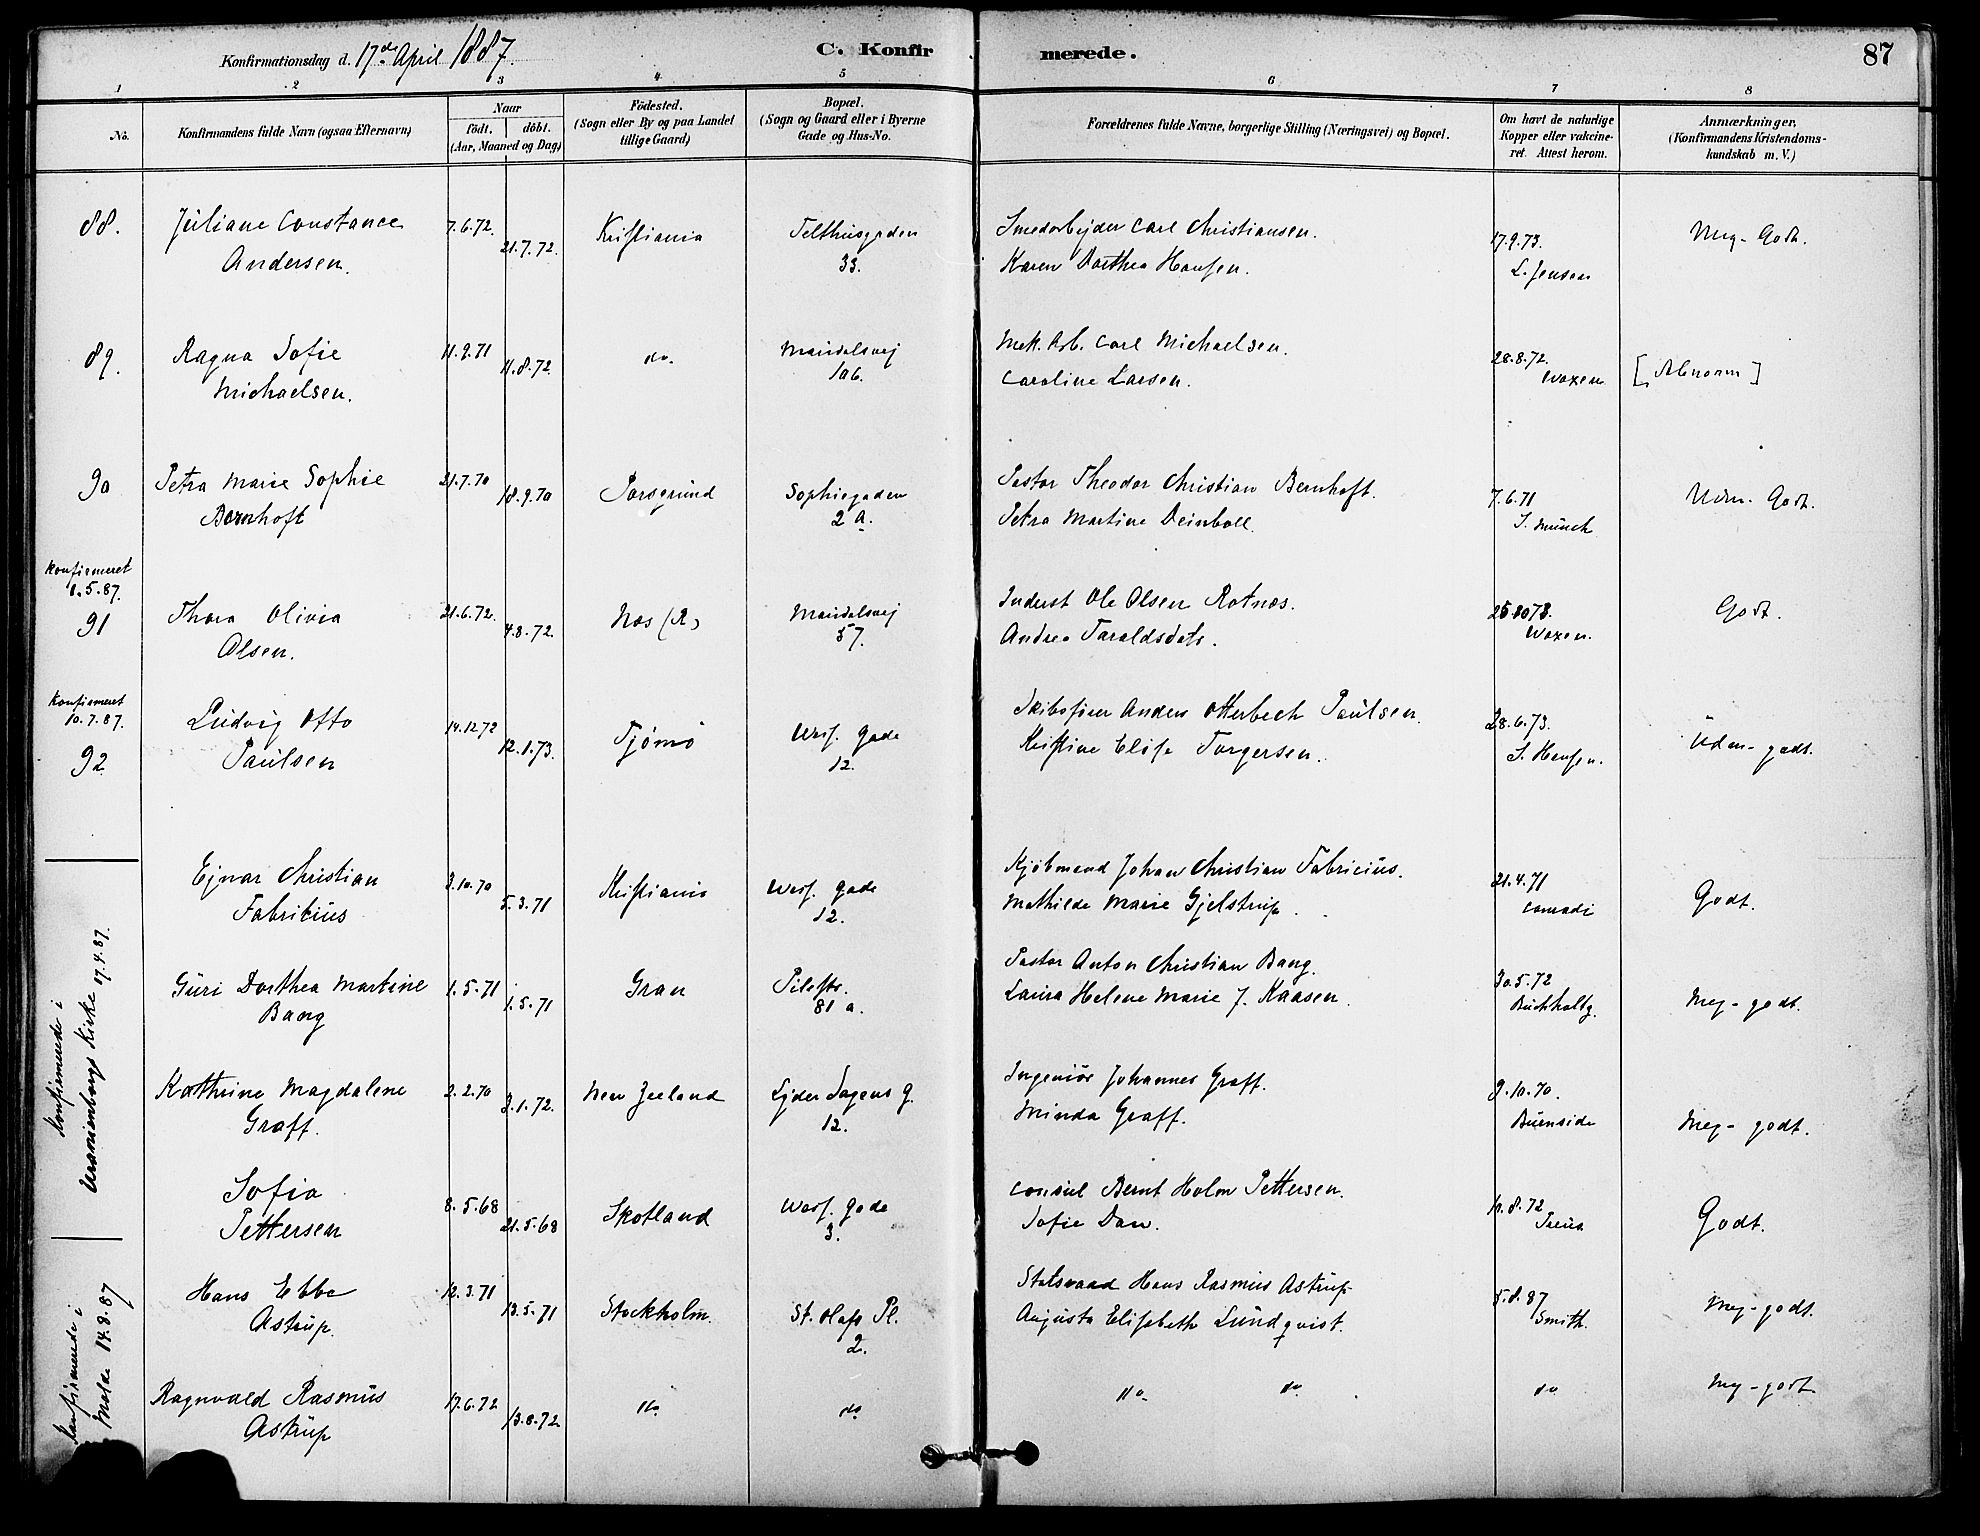 Konfirmationsdag d. 17de April 1887.
C. Konfirmerede.
87
1 2 3 4 5 6 7 8
No.
Konfirmandens fulde Navn (ogsaa Efternavn)
Naar
födt. döbt.
(Aar, Maaned og Dag)
Födested.
(Sogn eller By og paa Landet
tillige Gaard)
Bopæl.
(Sogn og Gaard eller i Byerne
Gade og Hus-No.
Forældrenes fulde Navne, borgerlige Stilling (Næringsvei) og Bopæl.
Om havt de naturlige
Kopper eller vakcine-
ret. Attest herom.
Anmærkninger,
(Konfirmandens Kristendoms-
kundskab m. V.)
88. Juliane Constance
Andersen.
7.6.72. 21.7.72. Kristiania
Telthusgaden
33.
Smedarbejder Carl Christiansen.
Karen Dorthea Hansen.
17.9.73.
L. Jensen
Meg. Godt.
89. Ragna Sofie
Michaelsen.
11.9.71 11.8.72. do.
Maridalsvej
106.
Mek. Arb. Carl Michaelsen.
Caroline Larsen.
28.8.72.
Woxen
[Abnorm]
90 Petra Marie Sophie
Bernhoft
21.7.70 18.9.70 Porsgrund
Sophiegaden
2 a.
Pastor Theodor Christian Bernhoft.
Petra Martine Deinboll.
7.6.71
S. Münch
Udm. Godt.
konfirmeret
8.5.87.
91 Thora Olivia
Olsen.
21.6.72. 4.8.72. Næs (R)
Maridalsvej
57.
Inderst Ole Olsen Rotnæs.
Andrea Taraldsdatr.
Woxen.
Godt.
konfirmeret
10.7.87.
92 Ludvig Otto
Paulsen
14.12.72 12.1.73. Tjømø
Wess. Gade
12.
Skibsfører Anders Otterbech Paulsen.
Kristine Elise Torgersen.
28.6.73.
S. Hansen.
Udm- godt.
konfirmerede i
Uranienborgs Kirke 17.4.87.
Ejnar Christian
Fabritius
3.10.70 5.3.71 Kristiania
Wess. Gade
12.
Kjøbmand Johan Christian Fabricius.
Mathilde Marie Gjelstrup.
21.4.71
Conradi
Godt.
Guri Dorthea Martine
Bang
1.5.71 1.5.71 Gran
Pilestr.
81 a.
Pastor Anton Christian Bang.
Laura Helene Marie J. Kaasen.
30.5.72
Buchholtz.
Meg- godt.
Kathrine Magdalene
Graff.
2.2.70 3.1.72. New Zeeland
Ejder Sagens G.
12.
Ingeniør Johannes Graff.
Minda Graff.
9.10.70.
Burnside
Meg- godt.
Sofia
Pettersen
8.5.68 21.5.68 Skotland
Wess. Gade
3.
Consul Bernt Holm Pettersen.
Sofie Dan.
10.8.72
Godt.
konfirmerede i
Molde 14.8.87
Hans Ebbe
Astrup.
12.3.71 13.5.71 Stockholm.
St. Olafs Pl.
2.
Statsraad Hans Rasmus Astrup
Augusta Elisabeth Lundqvist.
5.8.87
Smith.
Meg- godt.
Ragnvald Rasmus
Astrup
17.6.72 13.8.72 do. do
do do
do
Meg- godt.